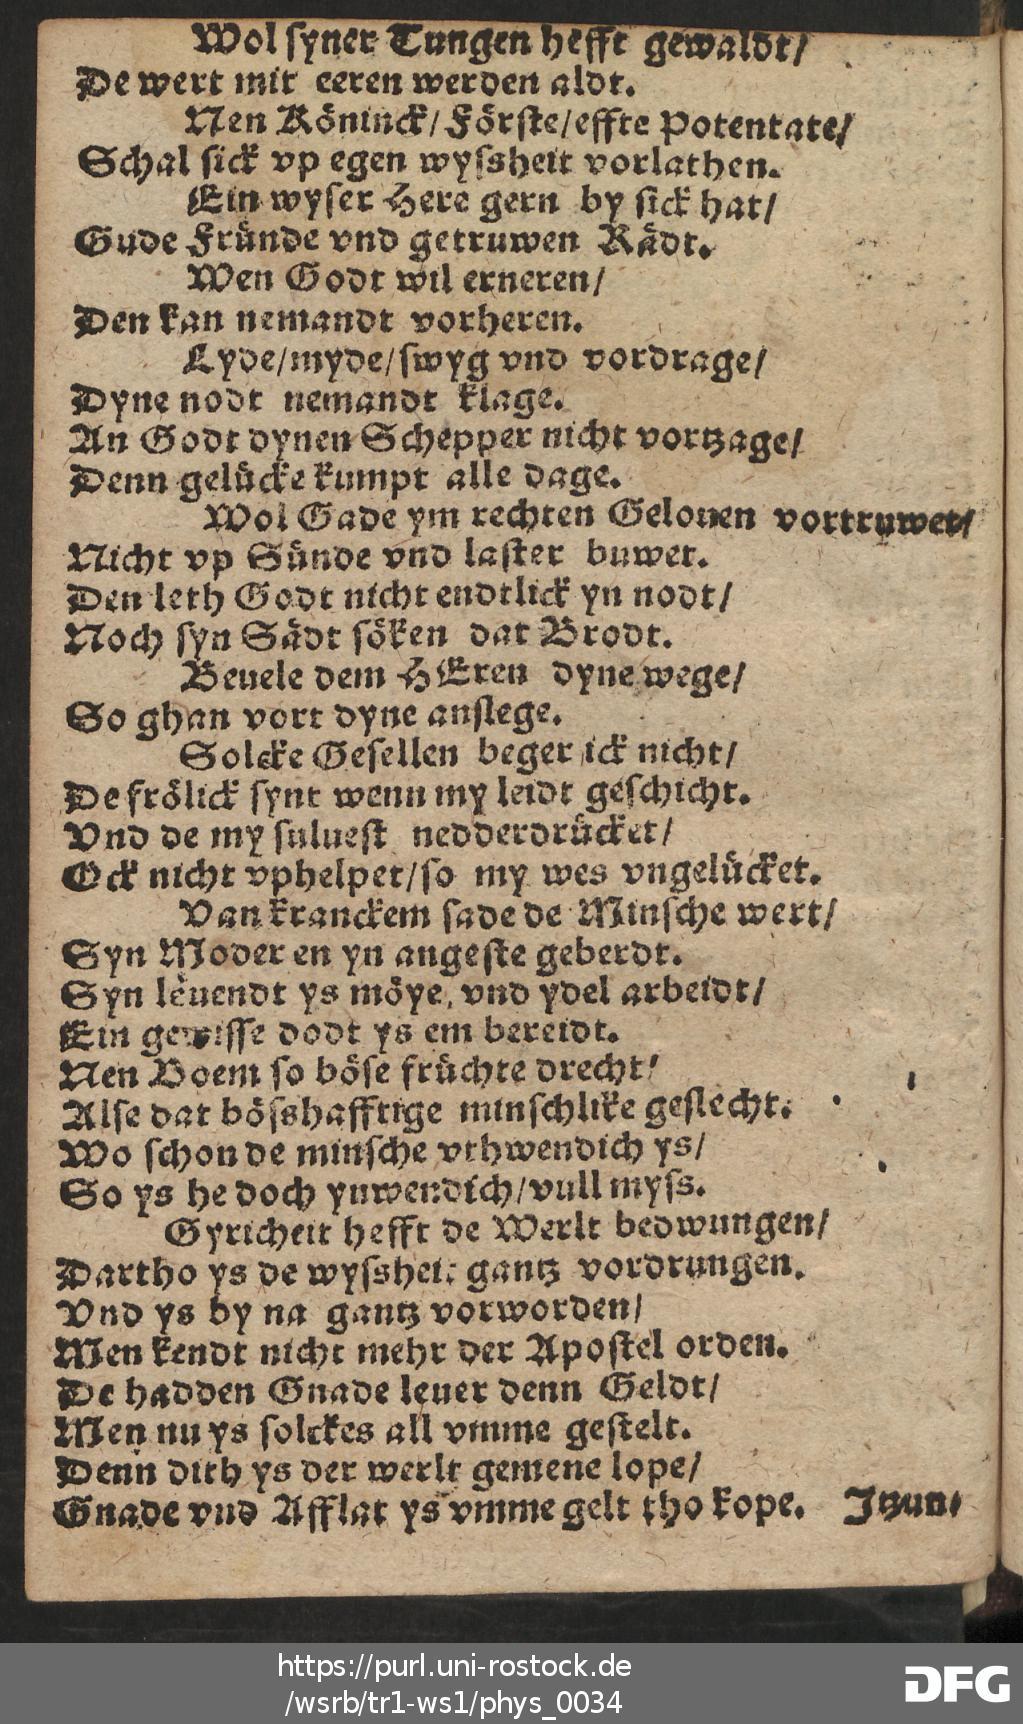 Wol syner Tungen hefft gewaldt/
De wert mit eeren werden aldt.
Nen Köninck/ Förste/ effte Potentate/
Schal sick vp egen wyssheit vorlathen.
Ein wyser Here gern by sick hat/
Gude Fründe vnd getruwen Rädt.
Wen Godt wil erneren/
Den kan nemandt vorheren.
Lyde/ myde/ swyg vnd vordrage/
Dyne nodt nemandt klage.
An Godt dynen Schepper nicht vortzage/
Denn gelücke kumpt alle dage.
Wol Gade ym rechten Gelouen vortruwet/
Nicht vp Sünde vnd laster buwet.
Den leth Godt nicht endtlick yn nodt/
Noch syn Sädt söken dat Brodt.
Beuele dem HEren dyne wege/
So ghan vort dyne anslege.
Solcke Gesellen beger ick nicht/
De frölick synt wenn my leidt geschicht.
Vnd de my suluest nedderdrücket/
Ock nicht vphelpet/ so my wes vngelücket.
Van kranckem sade de Minsche wert/
Syn Moder en yn angeste geberdt.
Syn leuendt ys möye, vnd ydel arbeidt/
Ein gewisse dodt ys em bereidt.
Nen Boem so böse früchte drecht/
Alse dat bösshafftige minschlike geslecht.
Wo schon de minsche vthwendich ys/
So ys he doch ynwendich/ vull myss.
Gyricheit hefft de Werlt bedwungen/
Dartho ys de wyssheit gantz vordrungen.
Vnd ys by na gantz vorworden/
Men kendt nicht mehr der Apostel orden.
De hadden Gnade leuer denn Geldt/
Men nu ys solckes all vmme gestelt.
Denn dith ys der werlt gemene lope/
Gnade vnd Afflat ys vmme gelt tho kope. Itzun-
https://purl.uni-rostock.de
/wsrb/tr1-ws1/phys_0034
DFG